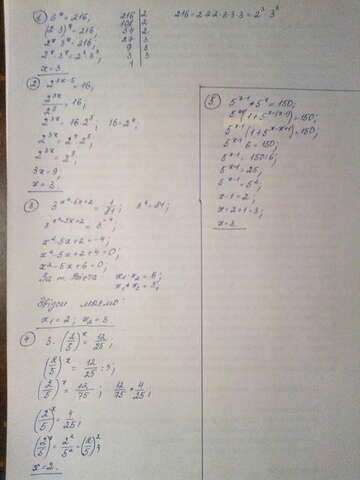 1) 6ˣ = 216,
(2·3)ˣ = 216,
2ˣ·3ˣ = 216,
2ˣ·3ˣ = 2³·3³,
x = 3.
216|2
108|2
54|2
27|3
9|3
3|3
1
216 = 2·2·2·3·3·3 = 2³·3³
2) 2³ˣ⁻⁵ = 16,
2³ˣ/2⁵ = 16;
2³ˣ = 16·2⁵, 16 = 2⁴,
2³ˣ = 2⁴·2⁵,
2³ˣ = 2⁹,
3x = 9,
x = 3.
3) 3^(x²-5x+2) = 1/81; 3⁴ = 81;
3^(x²-5x+2) = 3⁻⁴,
x²-5x+2 = -4;
x²-5x+2+4 = 0;
x²-5x+6 = 0;
За т. Вієта: x₁·x₂ = 6;
x₁+x₂ = 5;
Звідси маємо:
x₁ = 2; x₂ = 3.
4) 3·(2/5)ˣ = 12/25;
(2/5)ˣ = 12/25 : 3;
(2/5)ˣ = 12/75; 12/75 = 4/25;
(2/5)ˣ = 4/25;
(2/5)ˣ = 2²/5² = (2/5)²;
x = 2.
5) 5ˣ⁻¹ + 5ˣ = 150;
5ˣ⁻¹(1+5^(x-(x-1))) = 150;
5ˣ⁻¹(1+5^(x-x+1)) = 150;
5ˣ⁻¹·6 = 150;
5ˣ⁻¹ = 150:6;
5ˣ⁻¹ = 25,
5ˣ⁻¹ = 5²,
x-1 = 2;
x = 2+1 = 3;
x = 3